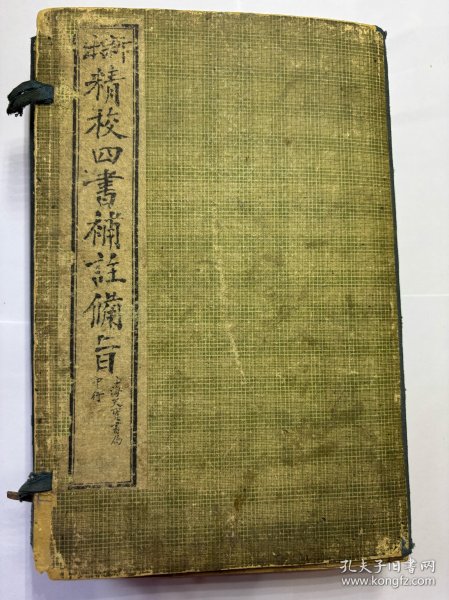 新
精校四書補註備旨
書局
孔夫子旧书网
www.kongfz.com